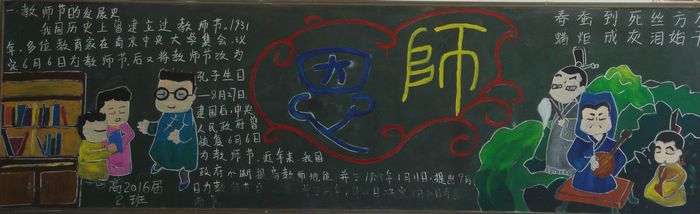 教师节的发展史
我国历史上曾建立过教师节,1931
年,多位教育家在南京中央大学集会,议
定6月6日为教师节,后又将教师节改为
孔子生日
—8月27日
建国后,中央
人民政府曾
恢复6月6日
为教师节,近年来我国
政府不断提高教师地位,并
高2016届
2班
恩師
春蚕到死丝方
蜡炬成灰泪始干